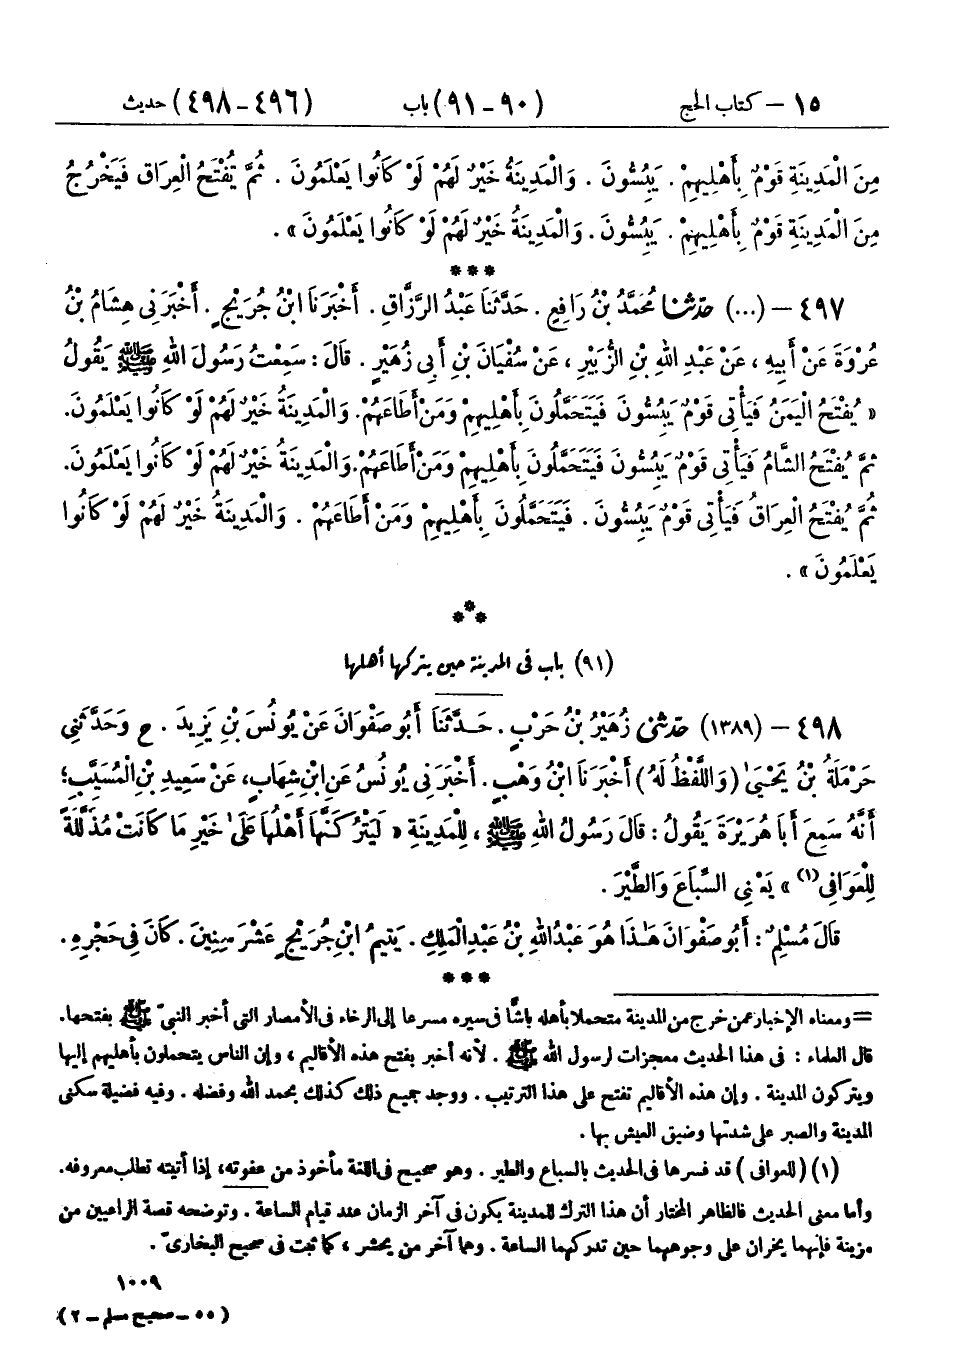 ١٥ – كتاب الحج (٩٠ – ٩١) باب (٤٩٦ – ٤٩٨) حديث
مِنَ الْمَدِينَةِ قَوْمٌ بِأَهْلِيهِمْ . يَبُسُّونَ . وَالْمَدِينَةُ خَيْرٌ لَهُمْ لَوْ كَانُوا يَعْلَمُونَ . ثُمَّ تُفْتَحُ الْعِرَاقُ فَيَخْرُجُ
مِنَ الْمَدِينَةِ قَوْمٌ بِأَهْلِيهِمْ . يَبُسُّونَ . وَالْمَدِينَةُ خَيْرٌ لَهُمْ لَوْ كَانُوا يَعْلَمُونَ » .
***
٤٩٧ – (...) حدّثنا مُحَمَّدُ بْنُ رَافِعٍ . حَدَّثَنَا عَبْدُ الرَّزَّاقِ . أَخْبَرَنَا ابْنُ جُرَيْجٍ . أَخْبَرَنِي هِشَامُ بْنُ
عُرْوَةَ عَنْ أَبِيهِ ، عَنْ عَبْدِ اللهِ بْنِ الزُّبَيْرِ ، عَنْ سُفْيَانَ بْنِ أَبِي زُهَيْرٍ . قَالَ : سَمِعْتُ رَسُولَ اللهِ ﷺ يَقُولُ
« يُفْتَحُ الْيَمَنُ فَيَأْتِي قَوْمٌ يَبُسُّونَ فَيَتَحَمَّلُونَ بِأَهْلِيهِمْ وَمَنْ أَطَاعَهُمْ . وَالْمَدِينَةُ خَيْرٌ لَهُمْ لَوْ كَانُوا يَعْلَمُونَ .
ثُمَّ يُفْتَحُ الشَّامُ فَيَأْتِي قَوْمٌ يَبُسُّونَ فَيَتَحَمَّلُونَ بِأَهْلِيهِمْ وَمَنْ أَطَاعَهُمْ . وَالْمَدِينَةُ خَيْرٌ لَهُمْ لَوْ كَانُوا يَعْلَمُونَ .
ثُمَّ يُفْتَحُ الْعِرَاقُ فَيَأْتِي قَوْمٌ يَبُسُّونَ . فَيَتَحَمَّلُونَ بِأَهْلِيهِمْ وَمَنْ أَطَاعَهُمْ . وَالْمَدِينَةُ خَيْرٌ لَهُمْ لَوْ كَانُوا
يَعْلَمُونَ » .
***
(٩١) باب فى المدينة حين يتركها أهلها
٤٩٨ – (١٣٨٩) حدّثنى زُهَيْرُ بْنُ حَرْبٍ . حَدَّثَنَا أَبُو صَفْوَانَ عَنْ يُونُسَ بْنِ يَزِيدَ . ح وَحَدَّثَنِي
حَرْمَلَةُ بْنُ يَحْيَىٰ ( وَاللَّفْظُ لَهُ ) أَخْبَرَنَا ابْنُ وَهْبٍ . أَخْبَرَنِي يُونُسُ عَنِ ابْنِ شِهَابٍ ، عَنْ سَعِيدِ بْنِ الْمُسَيَّبِ ؛
أَنَّهُ سَمِعَ أَبَا هُرَيْرَةَ يَقُولُ : قَالَ رَسُولُ اللهِ ﷺ ، لِلْمَدِينَةِ « لَيَتْرُكَنَّهَا أَهْلُهَا عَلَىٰ خَيْرِ مَا كَانَتْ مُذَلَّلَةً
لِلْعَوَافِي (١) » يَعْنِي السِّبَاعَ وَالطَّيْرَ .
قَالَ مُسْلِمٌ : أَبُو صَفْوَانَ هَٰذَا هُوَ عَبْدُ اللهِ بْنُ عَبْدِ الْمَلِكِ . يَتِيمُ ابْنِ جُرَيْجٍ عَشْرَ سِنِينَ . كَانَ فِي حَجْرِهِ .
***
= ومعناه الإخبار عمن خرج من المدينة متحملا بأهله باسًّا فى سيره مسرعا إلى الرخاء فى الأمصار التى أخبر النبىّ ﷺ بفتحها .
قال العلماء : فى هذا الحديث معجزات لرسول الله ﷺ . لأنه أخبر بفتح هذه الأقاليم ، وإن الناس يتحملون بأهليهم إليها
ويتركون المدينة . وإن هذه الأقاليم تفتح على هذا الترتيب . ووجد جميع ذلك كذلك بحمد الله وفضله . وفيه فضيلة سكنى
المدينة والصبر على شدتها وضيق العيش بها .
(١) ( للعوافى ) قد فسرها فى الحديث بالسباع والطير . وهو صحيح فى اللغة مأخوذ من عفوته ، إذا أتيته تطلب معروفه .
وأما معنى الحديث فالظاهر المختار أن هذا الترك للمدينة يكون فى آخر الزمان عند قيام الساعة . وتوضحه قصة الراعيين من
مزينة فإنهما يخران على وجوههما حين تدركهما الساعة . وهما آخر من يحشر ، كما ثبت فى صحيح البخارىّ .
١٠٠٩
( ٥٥ – صحيح مسلم – ٢ )